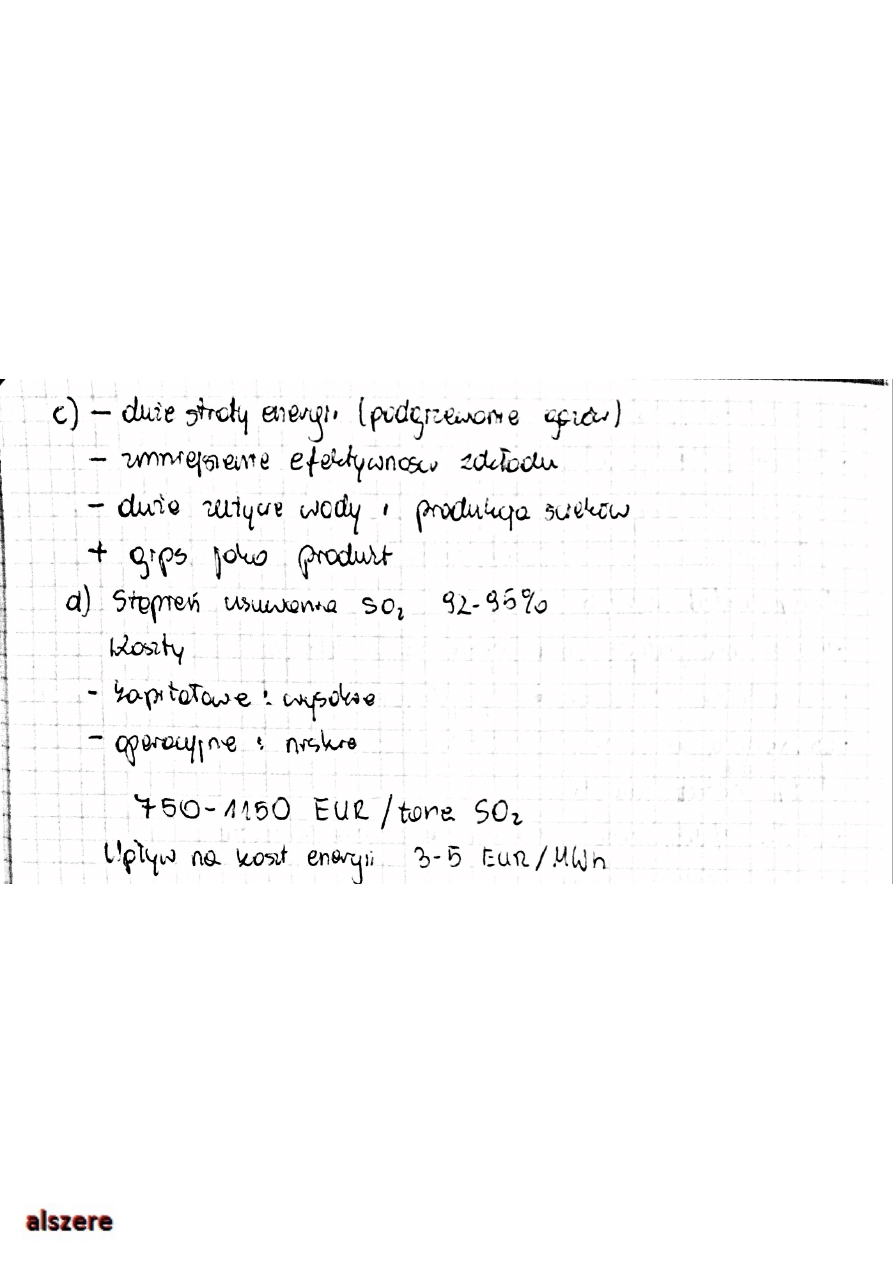 c) – duże straty energii (podgrzewanie gazów)
– zmniejszenie efektywności zakładu
– duże zużycie wody i produkcja ścieków
+ gips jako produkt
d) Stopień usuwania SO₂ 92-95%
Koszty
- kapitałowe : wysokie
- operacyjne : niskie
750-1150 EUR/tonę SO₂
Wpływ na koszt energii 3-5 EUR/MWh
alszere